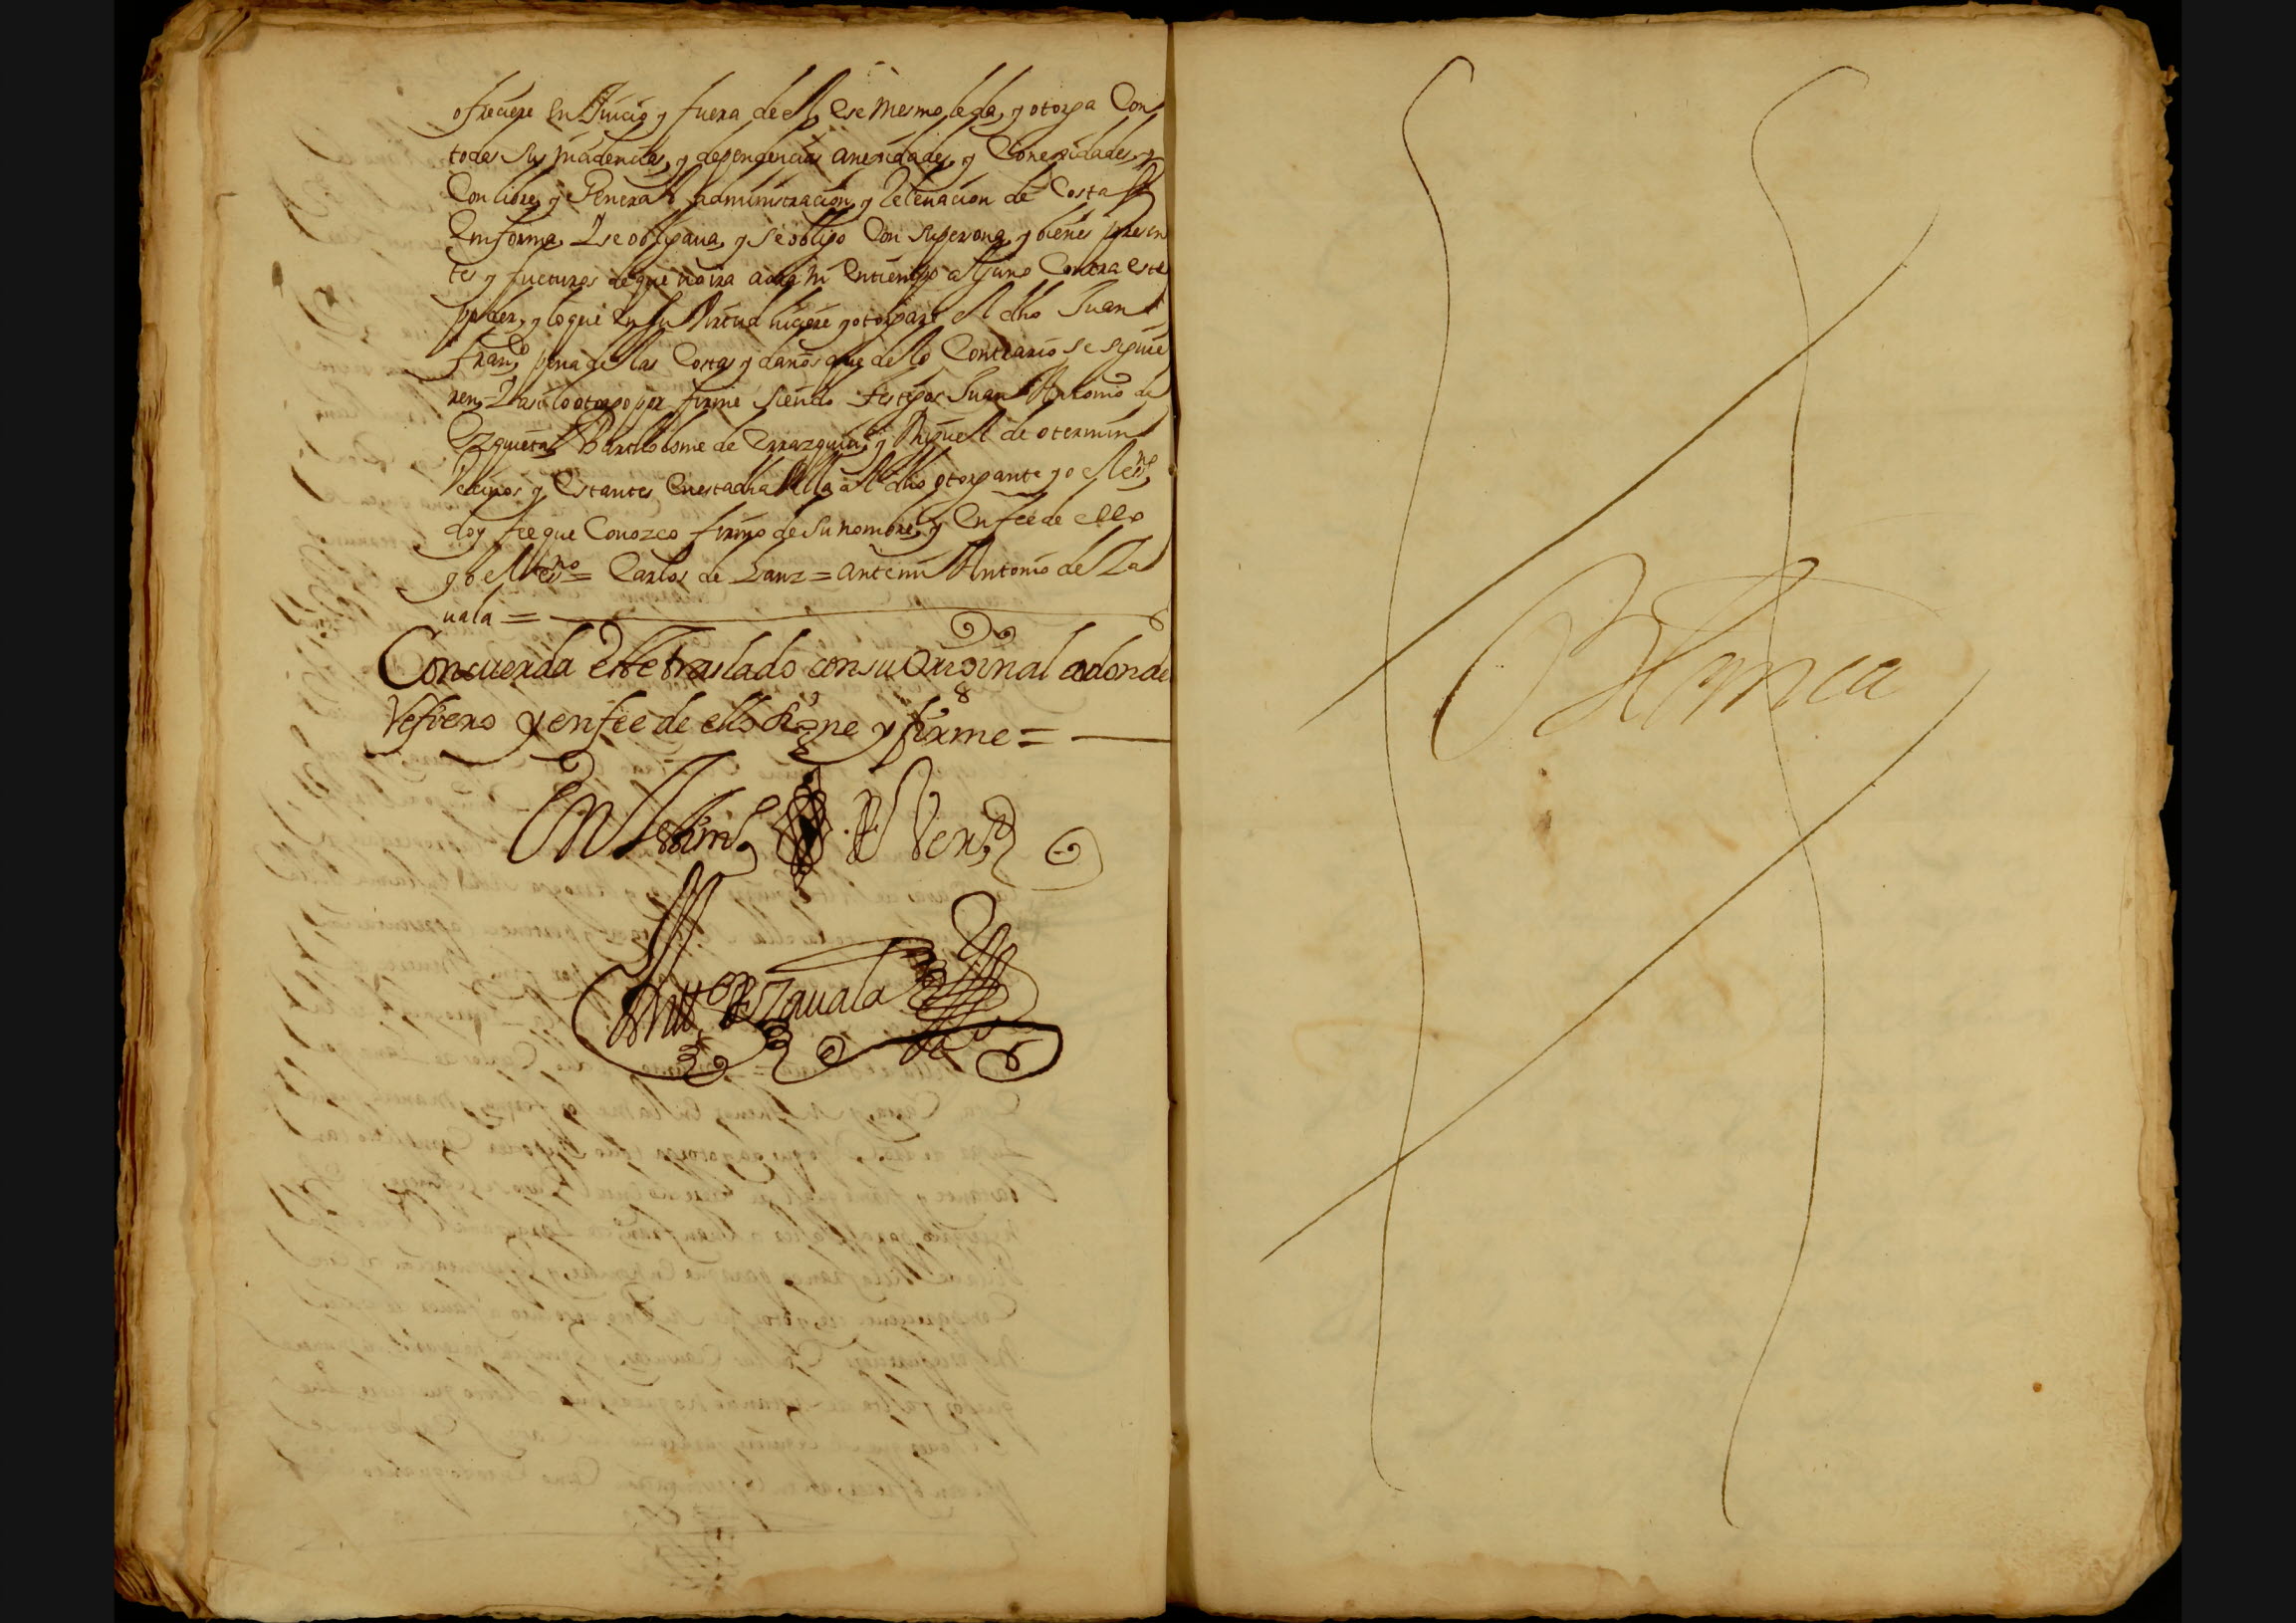 ofreciere en Juicio y fuera de el Ese mesmo le da, y otorga Con
todas sus incidencias, y dependencias anexidades, y Conexidades, y
Con libre, y General administracion, y Relevacion de Costa
En forma, Y se obligaua, y se obligo Con su persona, y bienes presen
tes y fucturos de que no ira aora ni En tiempo alguno Contra este
poder, y lo que En su Virtud hiciere y otorgare el dho Juan
franco, pena de las Costas y daños que de lo Contrario se siguie
ren, Y asi lo otorgo por firme siendo testigos Juan Antonio de
Ezquieta Bartholome de Errazquin, y Miguel de otermin
Vecinos y Estantes En esta dha Villa al dho otorgante yo el esno
doy fee que Conozco firmo de su nombre, y En fee de ello
yo el esno = Carlos de Lanz = ante mi Antonio de Za
uala =
Concuerda este traslado con su Original a donde
Refiero y en fee de ello signe y firme =
En Testimo de Verd
Antto de Zauala
Blanca